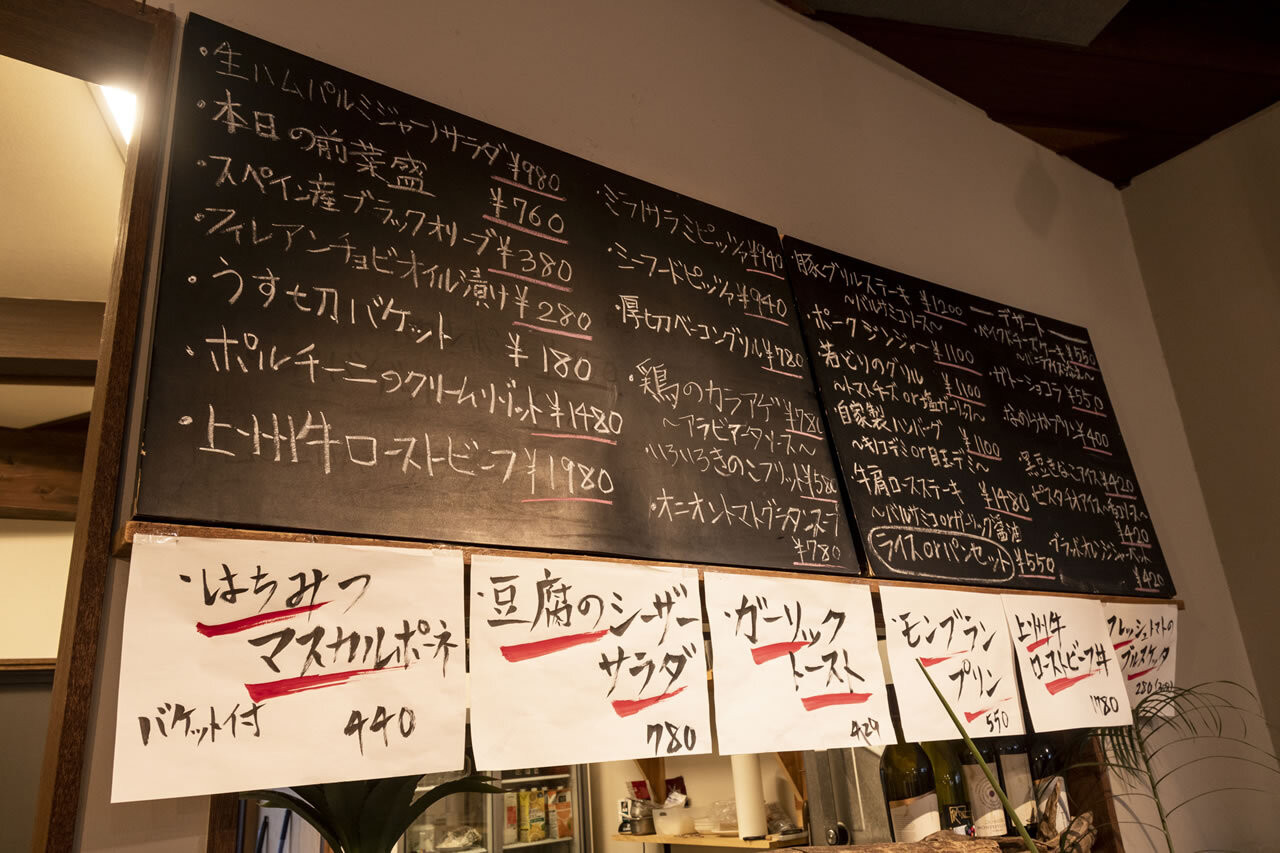 ・生ハムパルミジャーノサラダ ¥980
・本日の前菜盛 ¥760
・スペイン産ブラックオリーブ ¥380
・フィレアンチョビオイル漬け ¥280
・うす切バケット ¥180
・ポルチーニのクリームリゾット ¥1480
・上州牛ローストビーフ ¥1980
・ミラノサラミピッツァ ¥940
・シーフードピッツァ ¥940
・厚切ベーコングリル ¥780
・鶏のカラアゲ ¥780
〜アラビアータソース〜
・いろいろきのこフリット ¥580
・オニオントマトグラタンスープ
¥780
・豚グリルステーキ ¥1200
〜バルサミコソース〜
・ポークジンジャー ¥1100
・若どりのグリル ¥1100
〜トマトチーズor塩ガーリック〜
・自家製ハンバーグ ¥1100
〜キノコデミor目玉デミ〜
・牛肩ロースステーキ ¥1480
〜バルサミコorガーリック醤油
ライスorパンセット ¥550
ーデザートー
・ベイクドチーズケーキ ¥550
〜バニラアイス添え〜
・ガトーショコラ ¥550
なめらかプリン ¥400
黒豆きなこアイス ¥420
ピスタチオアイス
¥420
ブラッドオレンジシャーベット
¥420
・はちみつ
マスカルポーネ
バケット付 440
・豆腐のシーザー
サラダ
780
・ガーリック
トースト
429
・モンブラン
プリン
550
上州牛
ローストビーフ丼
1780
フレッシュトマトの
ブルスケッタ
280